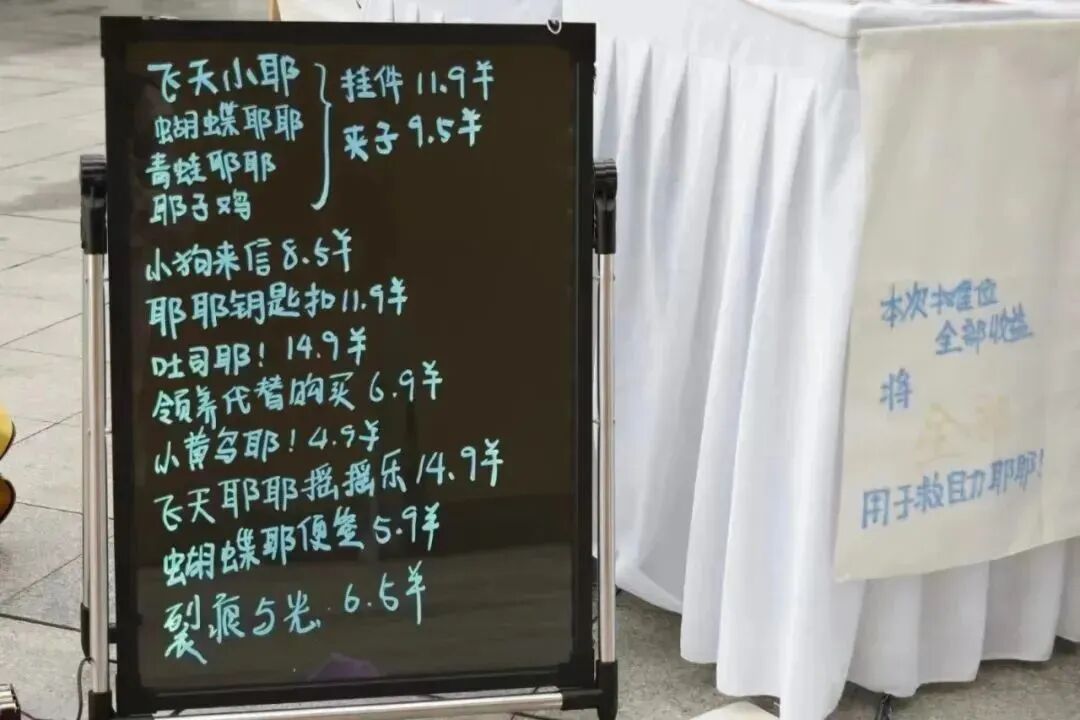 飞天小耶
蝴蝶耶耶
青蛙耶耶
耶子鸡
挂件 11.9半
夹子 9.5半
小狗来信 8.5半
耶耶钥匙扣 11.9半
吐司耶! 14.9半
领养代替购买 6.9半
小黄鸟耶! 4.9半
飞天耶耶摇摇乐 14.9半
蝴蝶耶便签 5.9半
裂痕与光 6.5半
本次摊位
全部收益
将
用于救助耶耶!